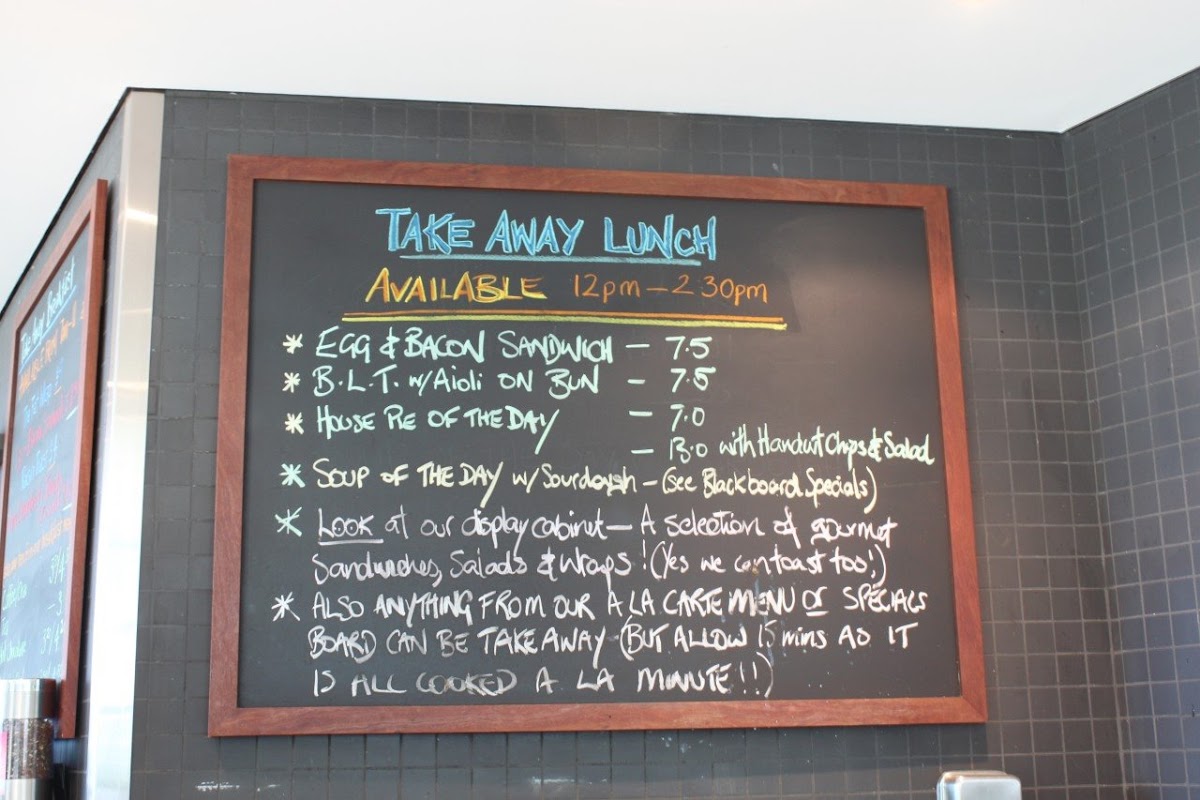 TAKE AWAY LUNCH
AVAILABLE 12pm - 2.30pm
* EGG & BACON SANDWICH - 7.5
* B.L.T. w/Aioli ON BUN - 7.5
* HOUSE PIE OF THE DAY - 7.0
- 13.0 with Handcut Chips & Salad
* SOUP OF THE DAY w/ Sourdough - (see Blackboard Specials)
* LOOK at our display cabinet - A selection of gourmet
Sandwiches, Salads & Wraps! (Yes we can toast too!)
* ALSO ANYTHING FROM OUR A LA CARTE MENU OR SPECIALS
BOARD CAN BE TAKE AWAY (BUT ALLOW 15 mins AS IT
IS ALL COOKED A LA MINUTE!!)
Take Away Breakfast